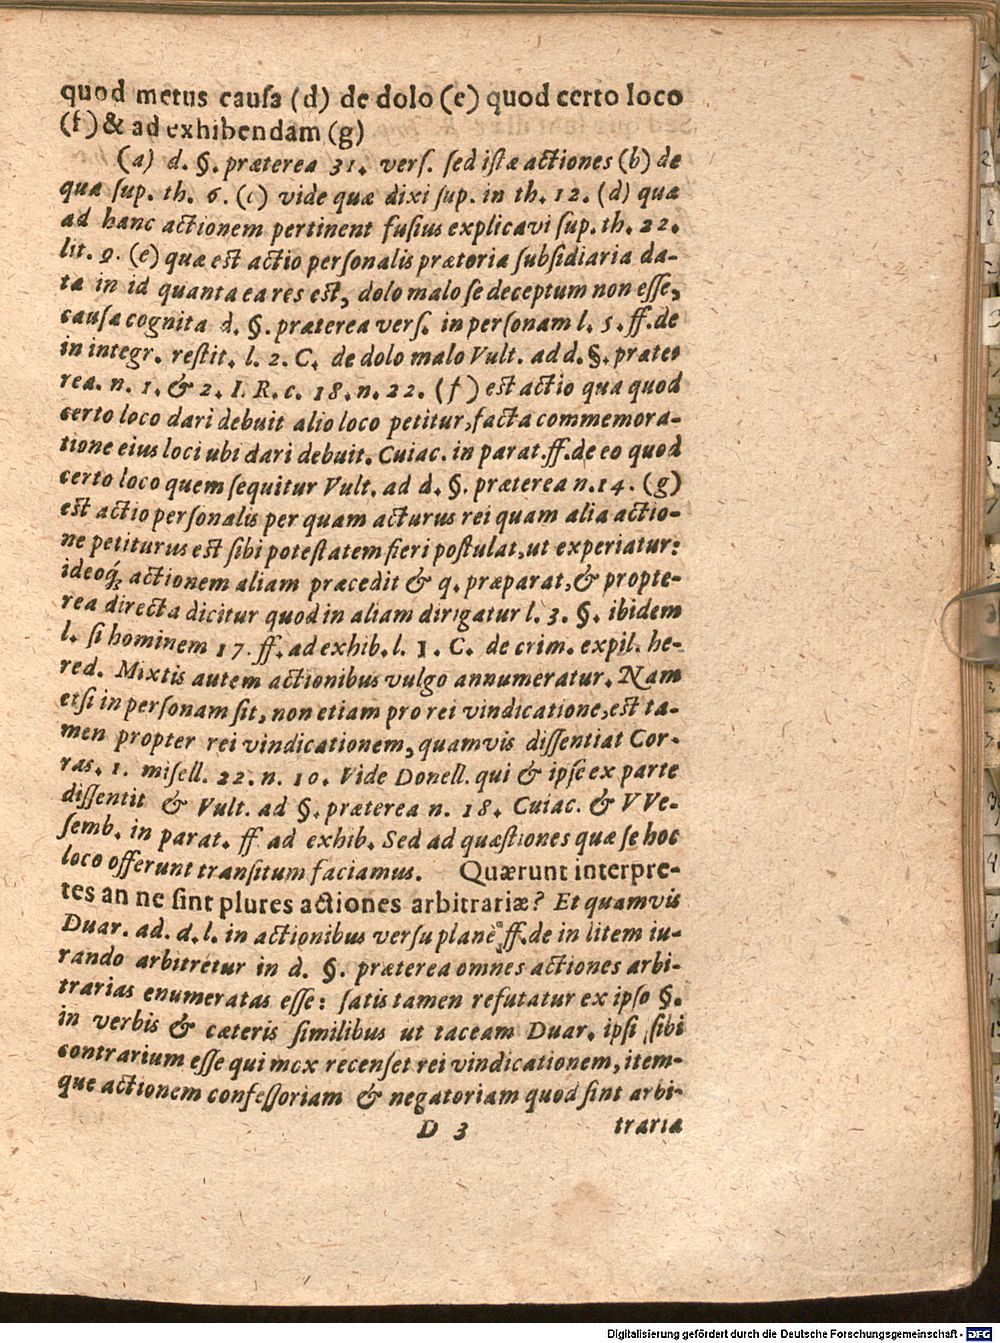 quod metus cauſa (d) de dolo (e) quod certo loco
(f) & ad exhibendam (g)
(a) d. §. præterea 31. verſ. ſed iſtæ actiones (b) de
qua ſup. th. 6. (c) vide quæ dixi ſup. in th. 12. (d) quæ
ad hanc actionem pertinent fuſius explicavi ſup. th. 22.
lit. 9. (e) quæ est actio perſonalis prætoria ſubſidiaria da-
ta in id quanta ea res est, dolo malo ſe deceptum non eſſe,
cauſa cognita d. §. præterea verſ. in perſonam l. 5. ff. de
in integr. reſtit. l. 2. C. de dolo malo Vult. ad d. §. præte-
rea. n. 1. & 2. I. R. c. 18. n. 22. (f) est actio qua quod
certo loco dari debuit alio loco petitur, facta commemora-
tione eius loci ubi dari debuit. Cuiac. in parat. ff. de eo quod
certo loco quem ſequitur Vult. ad d. §. præterea n. 14. (g)
est actio perſonalis per quam acturus rei quam alia actio-
ne petiturus est ſibi poteſtatem fieri poſtulat, ut experiatur:
ideoq́; actionem aliam præcedit & q. præparat, & propte-
rea directa dicitur quod in aliam dirigatur l. 3. §. ibidem
l. ſi hominem 17. ff. ad exhib. l. 1. C. de crim. expil. he-
red. Mixtis autem actionibus vulgo annumeratur. Nam
etſi in perſonam ſit, non etiam pro rei vindicatione, est ta-
men propter rei vindicationem, quamvis diſſentiat Cor-
ras. 1. miſell. 22. n. 10. Vide Donell. qui & ipſe ex parte
diſſentit & Vult. ad §. præterea n. 18. Cuiac. & VVe-
ſemb. in parat. ff ad exhib. Sed ad quæſtiones quæ ſe hoc
loco offerunt tranſitum faciamus. Quærunt interpre-
tes an ne ſint plures actiones arbitrariæ? Et quamvis
Duar. ad. d. l. in actionibus verſu planè ff. de in litem iu-
rando arbitretur in d. §. præterea omnes actiones arbi-
trarias enumeratas eſſe: ſatis tamen refutatur ex ipſo §.
in verbis & cæteris ſimilibus ut taceam Duar. ipſi ſibi
contrarium eſſe qui mox recenſet rei vindicationem, item-
que actionem confeſſoriam & negatoriam quod ſint arbi-
D 3 traria
Digitalisierung gefördert durch die Deutsche Forschungsgemeinschaft - DFG